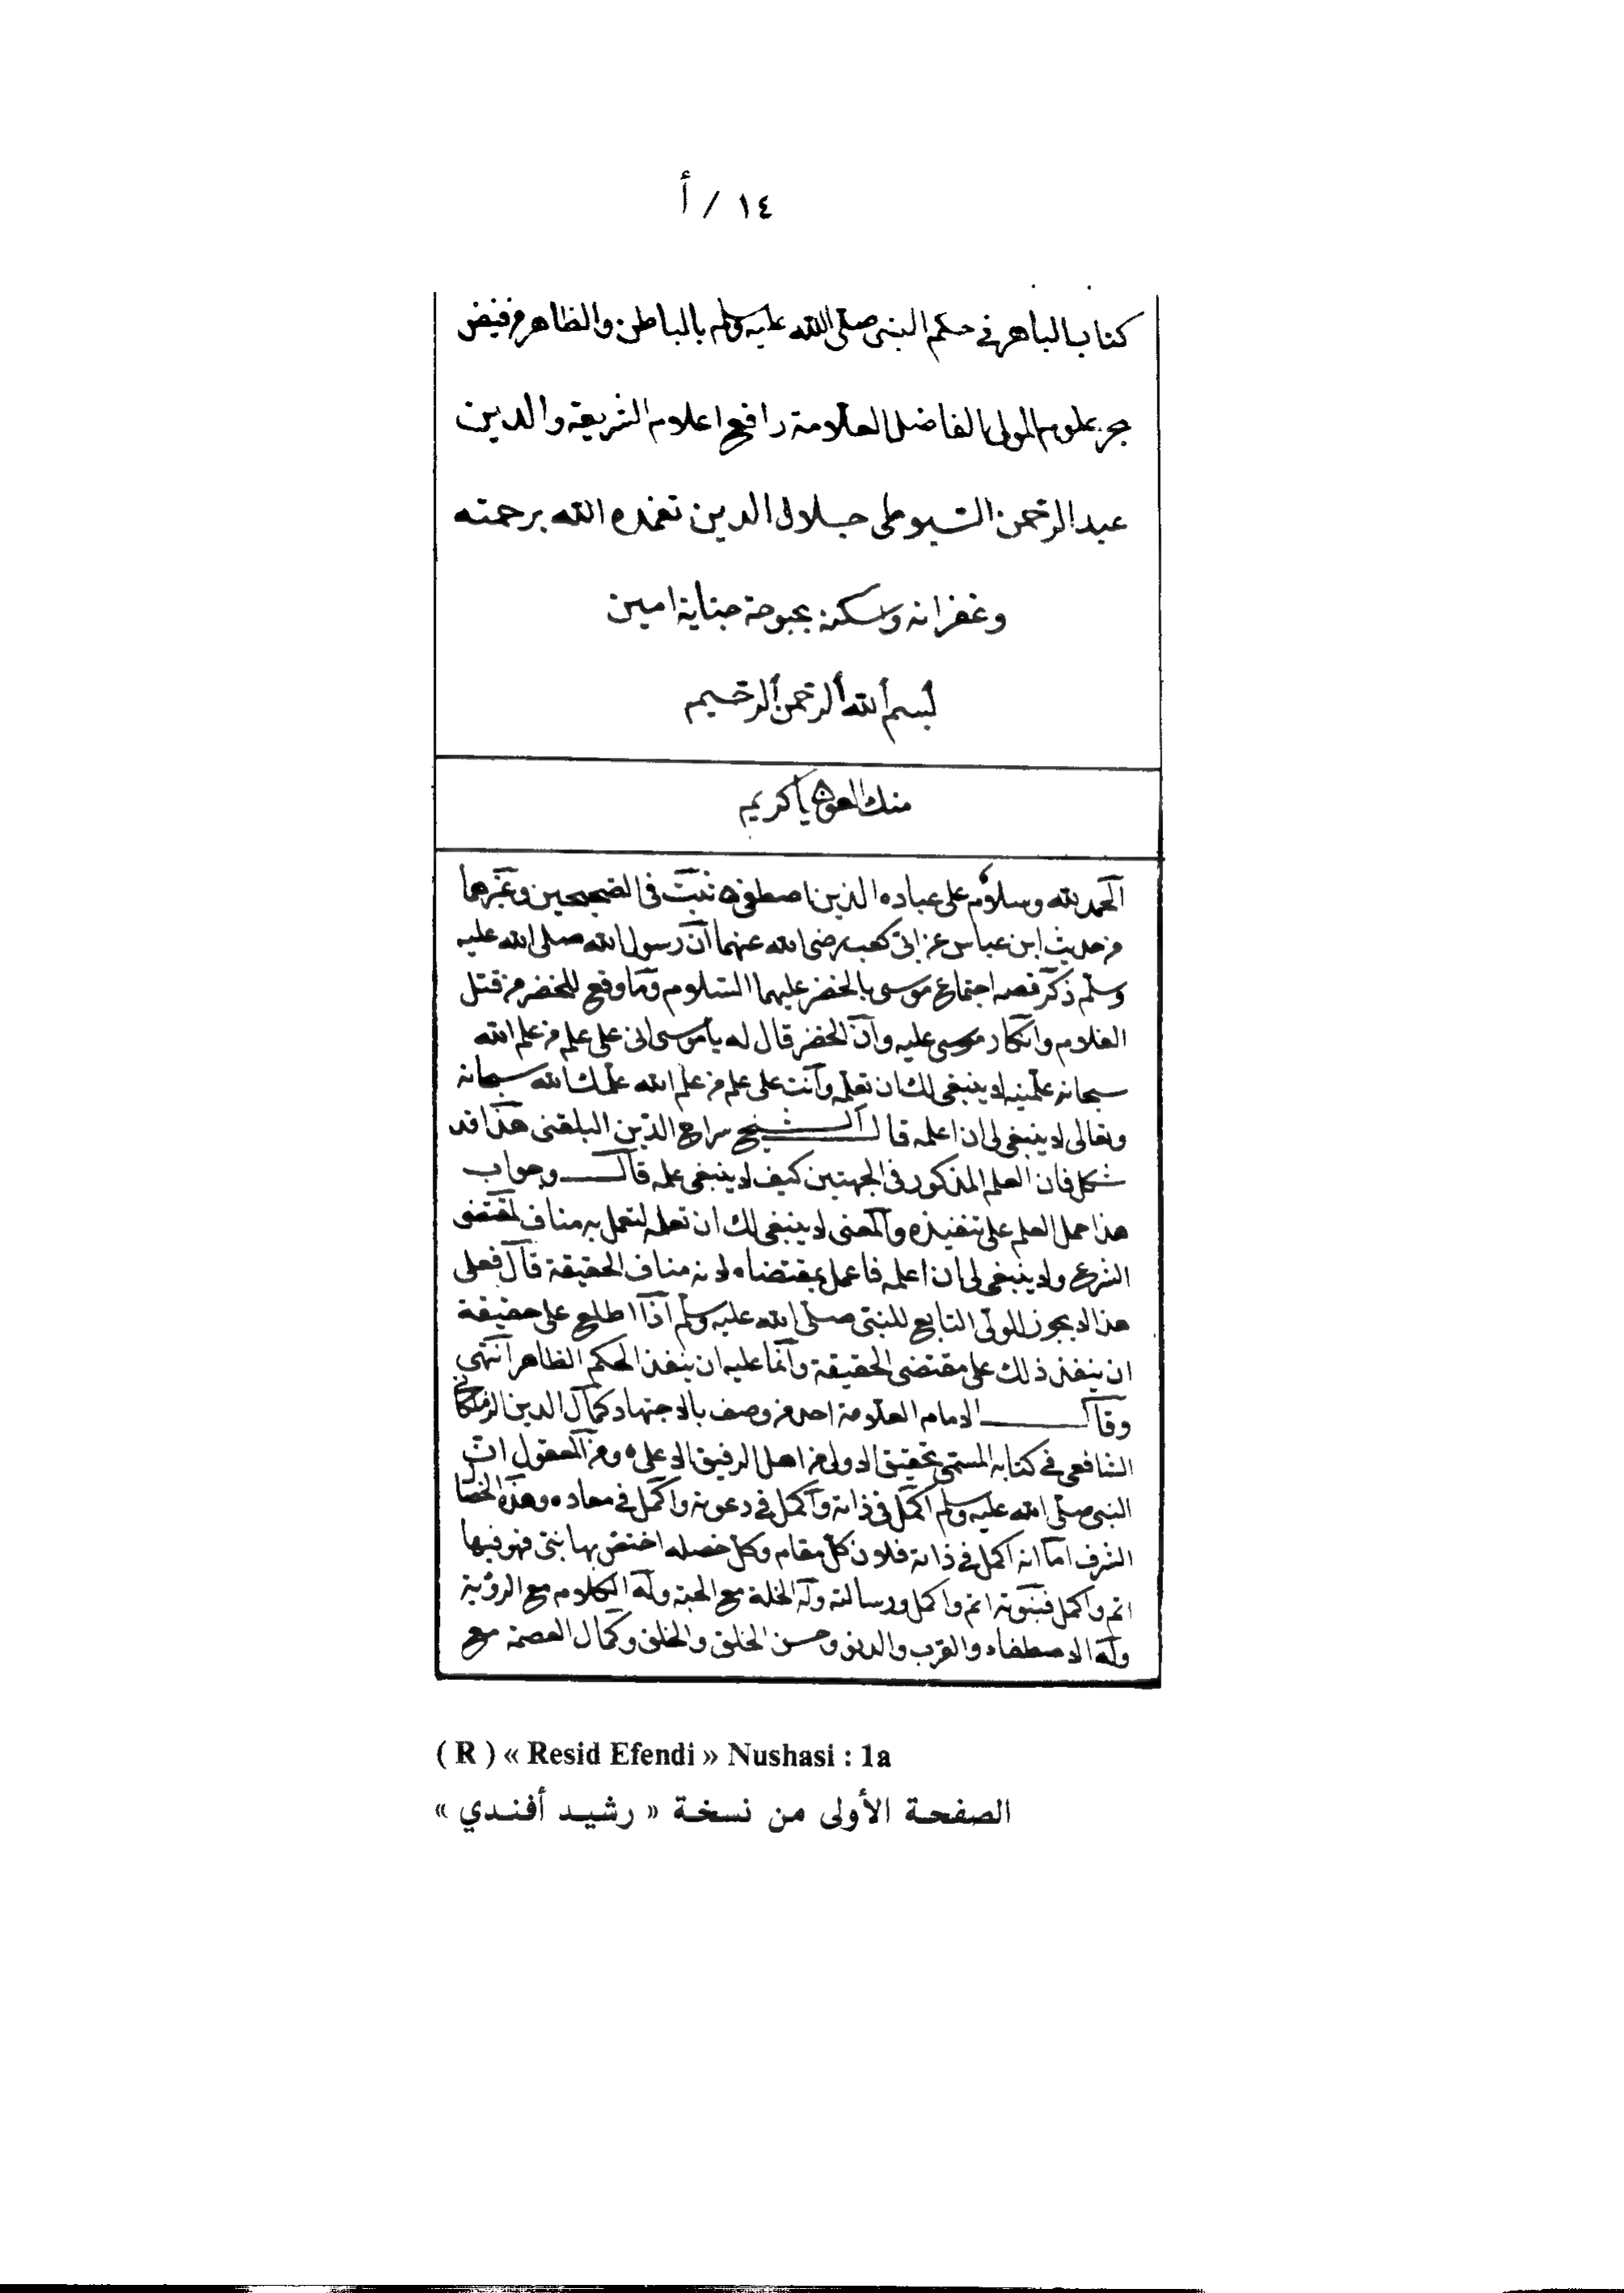 ١٤ / أ
كتاب الباهر في حكم النبي صلى الله عليه وسلم بالباطن والظاهر من فيض
بحر علوم المولى الفاضل العلامة رافع اعلام الشريعة والدين
عبد الرحمن السيوطى جلال الدين تغمده الله برحمته
وغفرانه واسكنه بحبوحة جنانه امين
بسم الله الرحمن الرحيم
منك العون يا كريم
الحمد لله وسلام على عباده الذين اصطفى ثبت فى الصحيحين وغيرهما
من حديث ابن عباس عن ابى كعب رضى الله عنهما ان رسول الله صلى الله عليه
وسلم ذكر قصه اجتماع موسى بالخضر عليهما السلام وما وقع للخضر من قتل
الغلام وانكار موسى عليه وان الخضر قال له يا موسى انى على علم من علم الله
سبحانه علمنيه لا ينبغى لك ان تعلمه وانت على علم من علم الله علمك الله سبحانه
وتعالى لا ينبغى لى ان اعلمه قال الشيخ سراج الدين البلقنى هذا قد
شكل فان العلم المذكور فى الجهتين كيف لا ينبغى علمه قال وجواب
هذا حمل العلم على تنفيذه والمعنى لا ينبغى لك ان تعلمه لتعمل به مناف لمقتضى
الشرع ولا ينبغى لى ان اعلمه فاعمل بمقتضاه لانه مناف الحقيقة قال فعلى
هذا لا يجوز للولى التابع للنبى صلى الله عليه وسلم اذا اطلع على حقيقة
ان ينفذ ذلك على مقتضى الحقيقة وانما عليه ان ينفذ الحكم الظاهر انتهى
وقال الامام العلامة احد من وصف بالاجتهاد كمال الدين الزملكانى
الشافعى فى كتابه المسمى تحقيق الاولى من اهل الرفيق الاعلى ومن المعقول ان
النبى صلى الله عليه وسلم اكمل فى ذاته واكمل فى دعوته واكمل فى معاده وهذه الخصال
الشرف اما انه اكمل فى ذاته فلان كل مقام وكل خصله اختص بها نبى فهو فيها
اتم واكمل فنبوته اتم واكمل ورسالته وله الخلة مع المحبة وله الكلام مع الرؤية
وله الاصطفاء والقرب والدنو وحسن الخلق والخلق وكمال العصمة مع
( R ) « Resid Efendi » Nushasi : 1a
الصفحة الأولى من نسخة « رشيد أفندي »